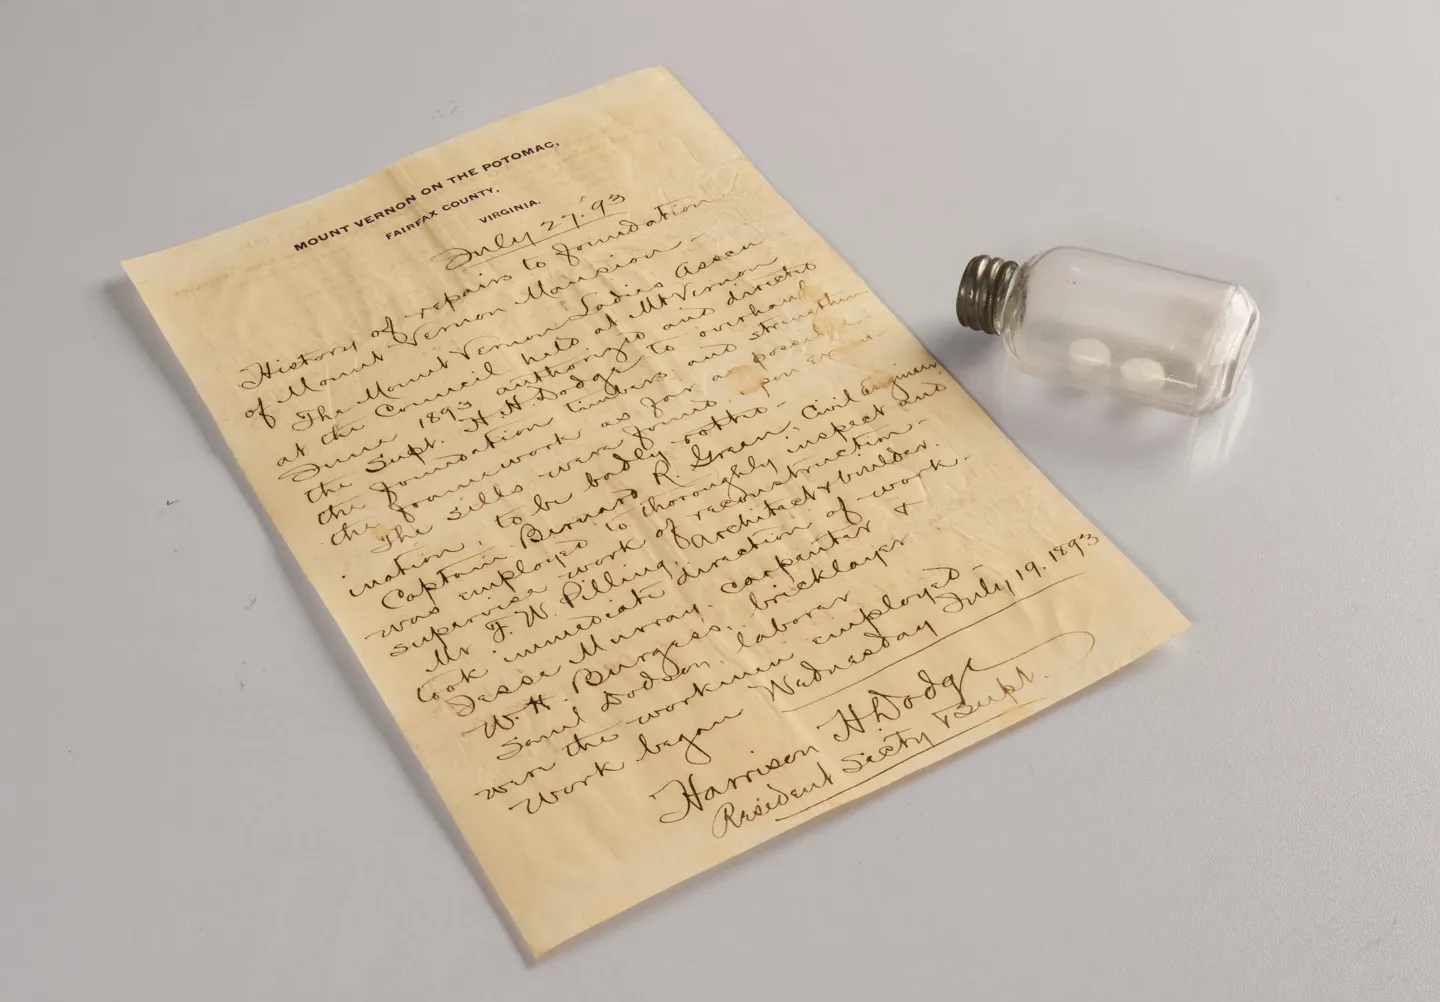 MOUNT VERNON ON THE POTOMAC,
FAIRFAX COUNTY,
VIRGINIA.
July 27. '93
History of repairs to foundation
of Mount Vernon Mansion -
The Mount Vernon Ladies Assen
at the Council held at Mt Vernon
June 1893 authorized and directed
the Supt. H. H. Dodge to overhaul
the foundation timbers and strengthen
the framework as far as possible
The sills were found, upon exami
nation, to be badly rotted -
Captain Bernard R. Green, Civil Engineer,
was employed to thoroughly inspect and
supervise work of reconstruction -
Mr. F. W. Pilling, architect & builder,
took immediate direction of work -
Jesse Murray, carpenter &
W. H. Burgess, bricklayer
Saml Dodson, laborer
were the workmen employed -
Work began Wednesday July 19. 1893
Harrison H Dodge
Resident Secty & Supt.